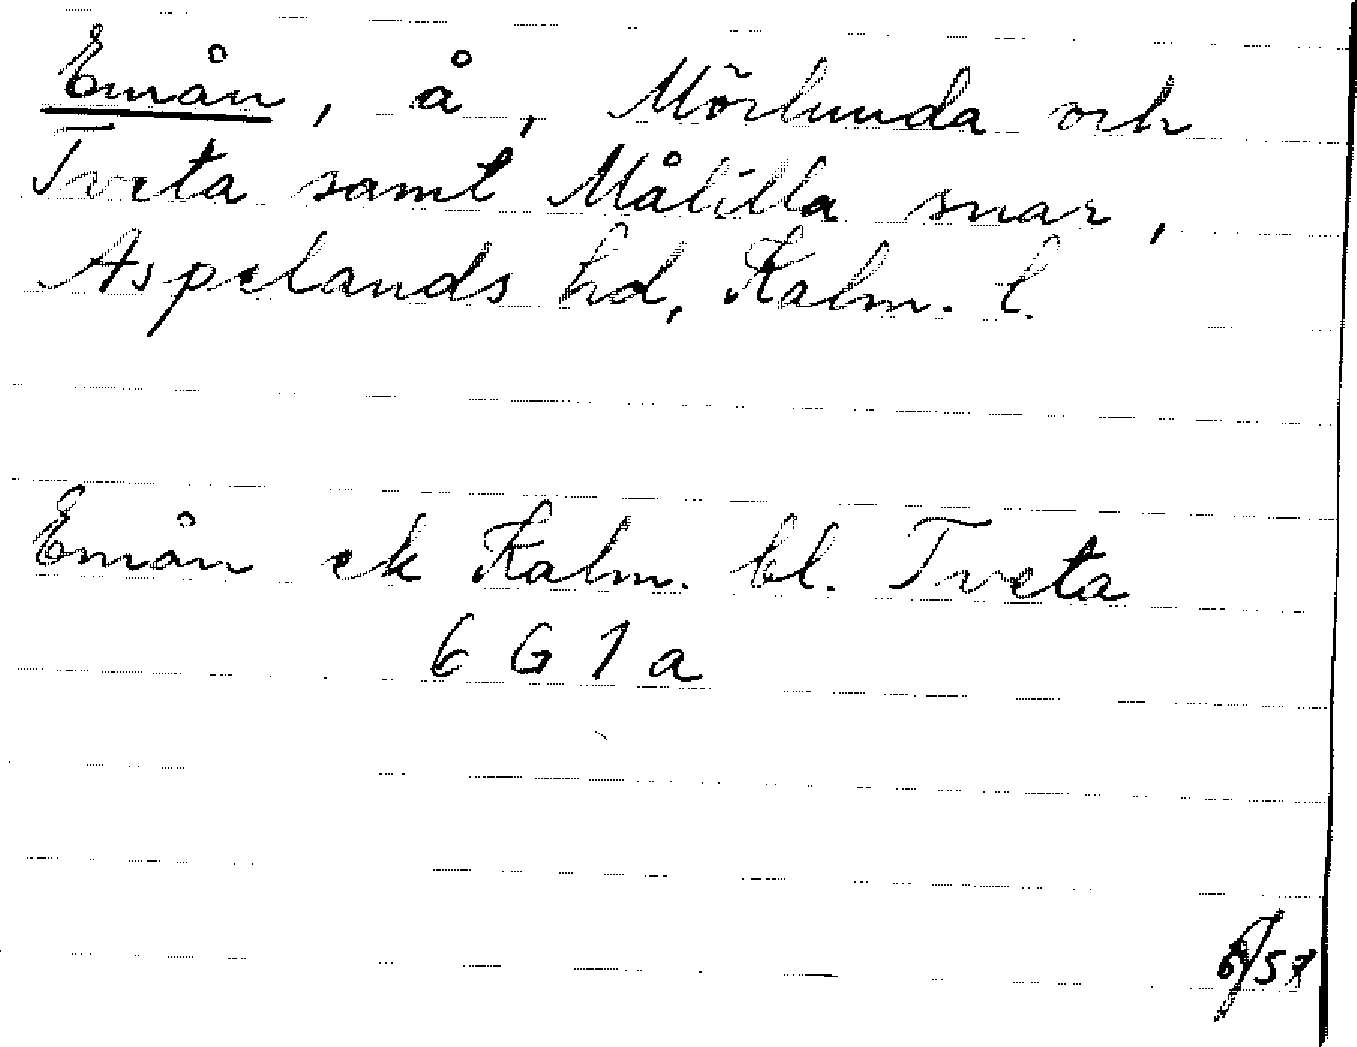 Emån, å, Mörlunda och
Tveta samt Målilla snar,
Aspelands hd, Kalm. l.
Emån ek Kalm. bl. Tveta
6 G 1 a